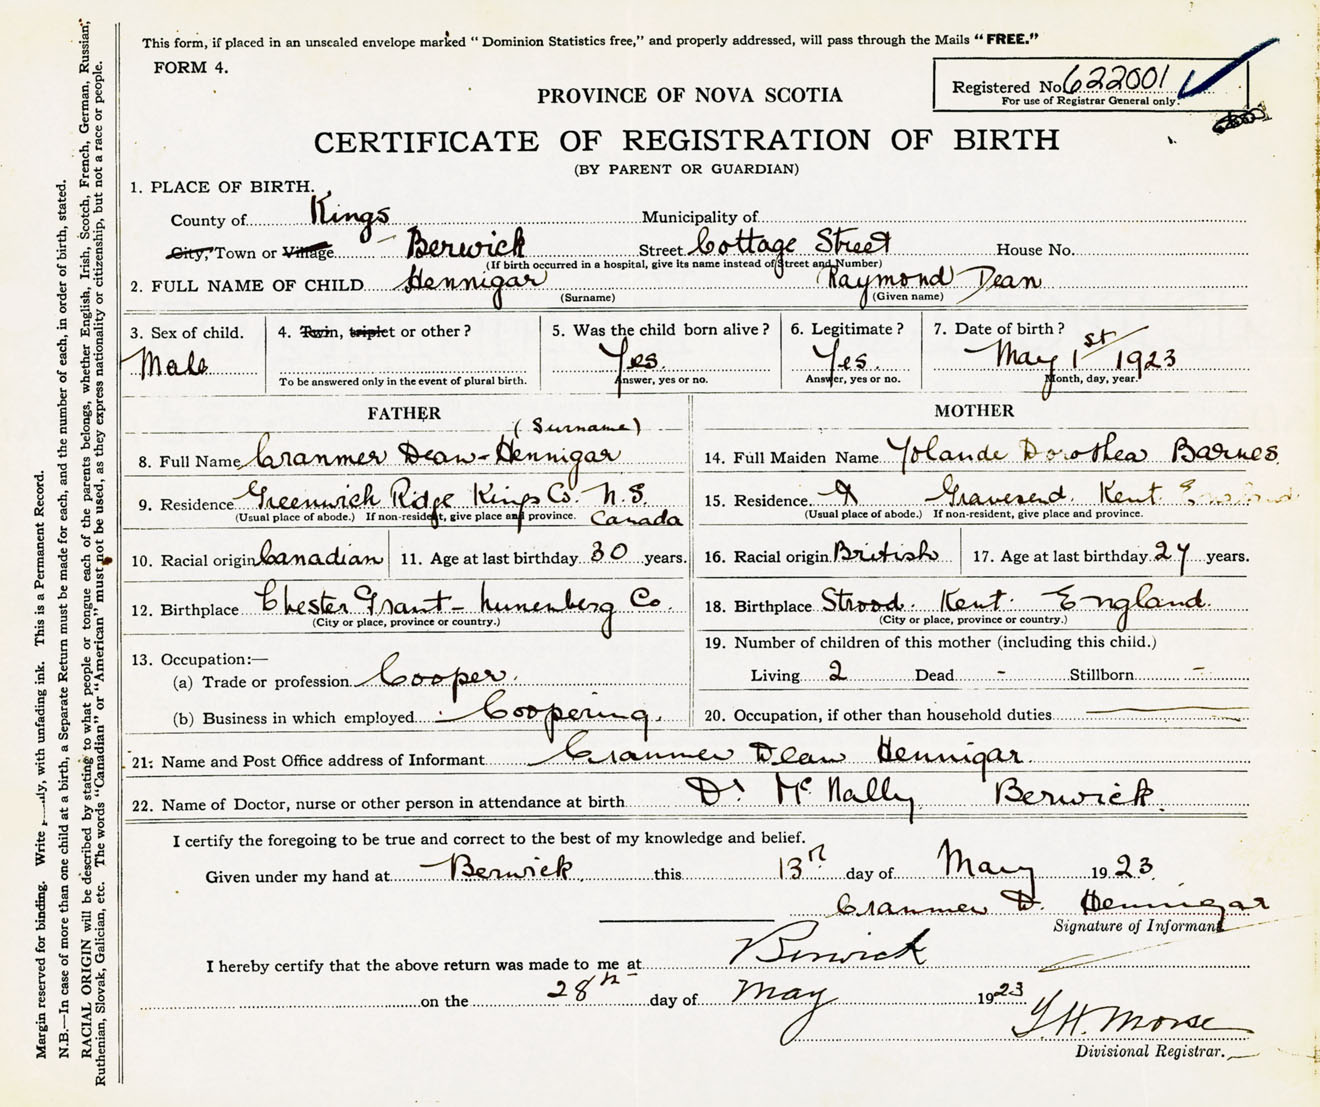 This form, if placed in an unsealed envelope marked "Dominion Statistics free," and properly addressed, will pass through the Mails "FREE."
FORM 4.
Registered No. 622001
For use of Registrar General only.
PROVINCE OF NOVA SCOTIA
CERTIFICATE OF REGISTRATION OF BIRTH
(BY PARENT OR GUARDIAN)
1. PLACE OF BIRTH.
County of Kings Municipality of
City, Town or Village Berwick Street Cottage Street House No.
(If birth occurred in a hospital, give its name instead of Street and Number)
2. FULL NAME OF CHILD Hennigar Raymond Dean
(Surname) (Given name)
3. Sex of child. 4. Twin, triplet or other? 5. Was the child born alive? 6. Legitimate? 7. Date of birth?
Male Yes. Yes. May 1st 1923
To be answered only in the event of plural birth. Answer, yes or no. Answer, yes or no. Month, day, year.
FATHER MOTHER
(Surname)
8. Full Name Cranmer Dean-Hennigar 14. Full Maiden Name Yolande Dorothea Barnes
9. Residence Greenwich Ridge Kings Co. N.S. 15. Residence Gravesend. Kent
(Usual place of abode.) If non-resident, give place and province. Canada (Usual place of abode.) If non-resident, give place and province.
10. Racial origin Canadian 11. Age at last birthday 30 years. 16. Racial origin British 17. Age at last birthday 27 years.
12. Birthplace Chester Grant- Lunenberg Co. 18. Birthplace Strood. Kent. England.
(City or place, province or country.) (City or place, province or country.)
19. Number of children of this mother (including this child.)
13. Occupation:—
(a) Trade or profession Cooper. Living 2 Dead - Stillborn -
(b) Business in which employed Coopering. 20. Occupation, if other than household duties
21: Name and Post Office address of Informant Cranmer Dean Hennigar.
22. Name of Doctor, nurse or other person in attendance at birth Dr McNally Berwick.
I certify the foregoing to be true and correct to the best of my knowledge and belief.
Given under my hand at Berwick this 13th day of May 1923.
Cranmer D. Hennigar
Signature of Informant
I hereby certify that the above return was made to me at Berwick
on the 28th day of May 1923
Divisional Registrar.
Margin reserved for binding. Write with unfading ink. This is a Permanent Record.
N.B.—In case of more than one child at a birth, a Separate Return must be made for each, and the number of each, in order of birth, stated.
RACIAL ORIGIN will be described by stating to what people or tongue each of the parents belongs, whether English, Irish, Scotch, French, German, Russian,
Ruthenian, Slovak, Galician, etc. The words "Canadian" or "American" must not be used, as they express nationality or citizenship, but not a race or people.